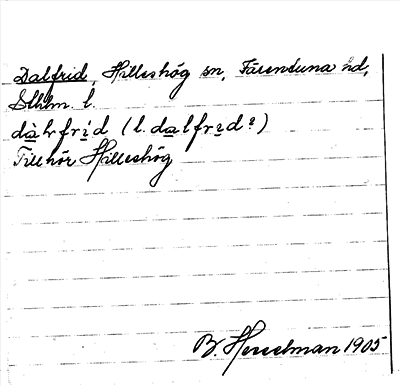 Dalfrid, Hilleshög sn, Färentuna hd,
Sthlm. l.
dàlfrid (l. dalfrid?)
Tillhör Hilleshög
B. Hesselman 1905